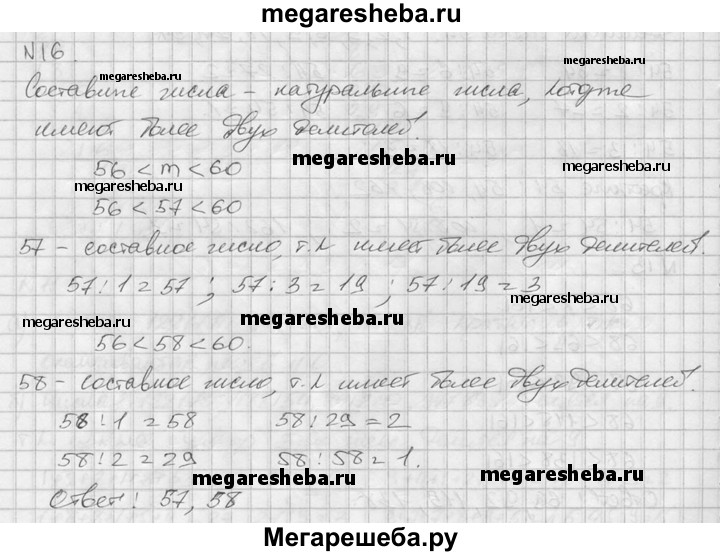 megaresheba.ru
N16.
megaresheba.ru megaresheba.ru
Составные числа – натуральные числа, которые
имеют более двух делителей.
megaresheba.ru
56 < m < 60
megaresheba.ru megaresheba.ru
56 < 57 < 60
57 – составное число, т.к имеет более двух делителей.
57 : 1 = 57 ; 57 : 3 = 19 ; 57 : 19 = 3
megaresheba.ru megaresheba.ru megaresheba.ru
56 < 58 < 60.
58 – составное число, т.к имеет более двух делителей.
58 : 1 = 58 58 : 29 = 2
58 : 2 = 29 58 : 58 = 1.
megaresheba.ru megaresheba.ru
Ответ: 57, 58
Мегарешеба.ру